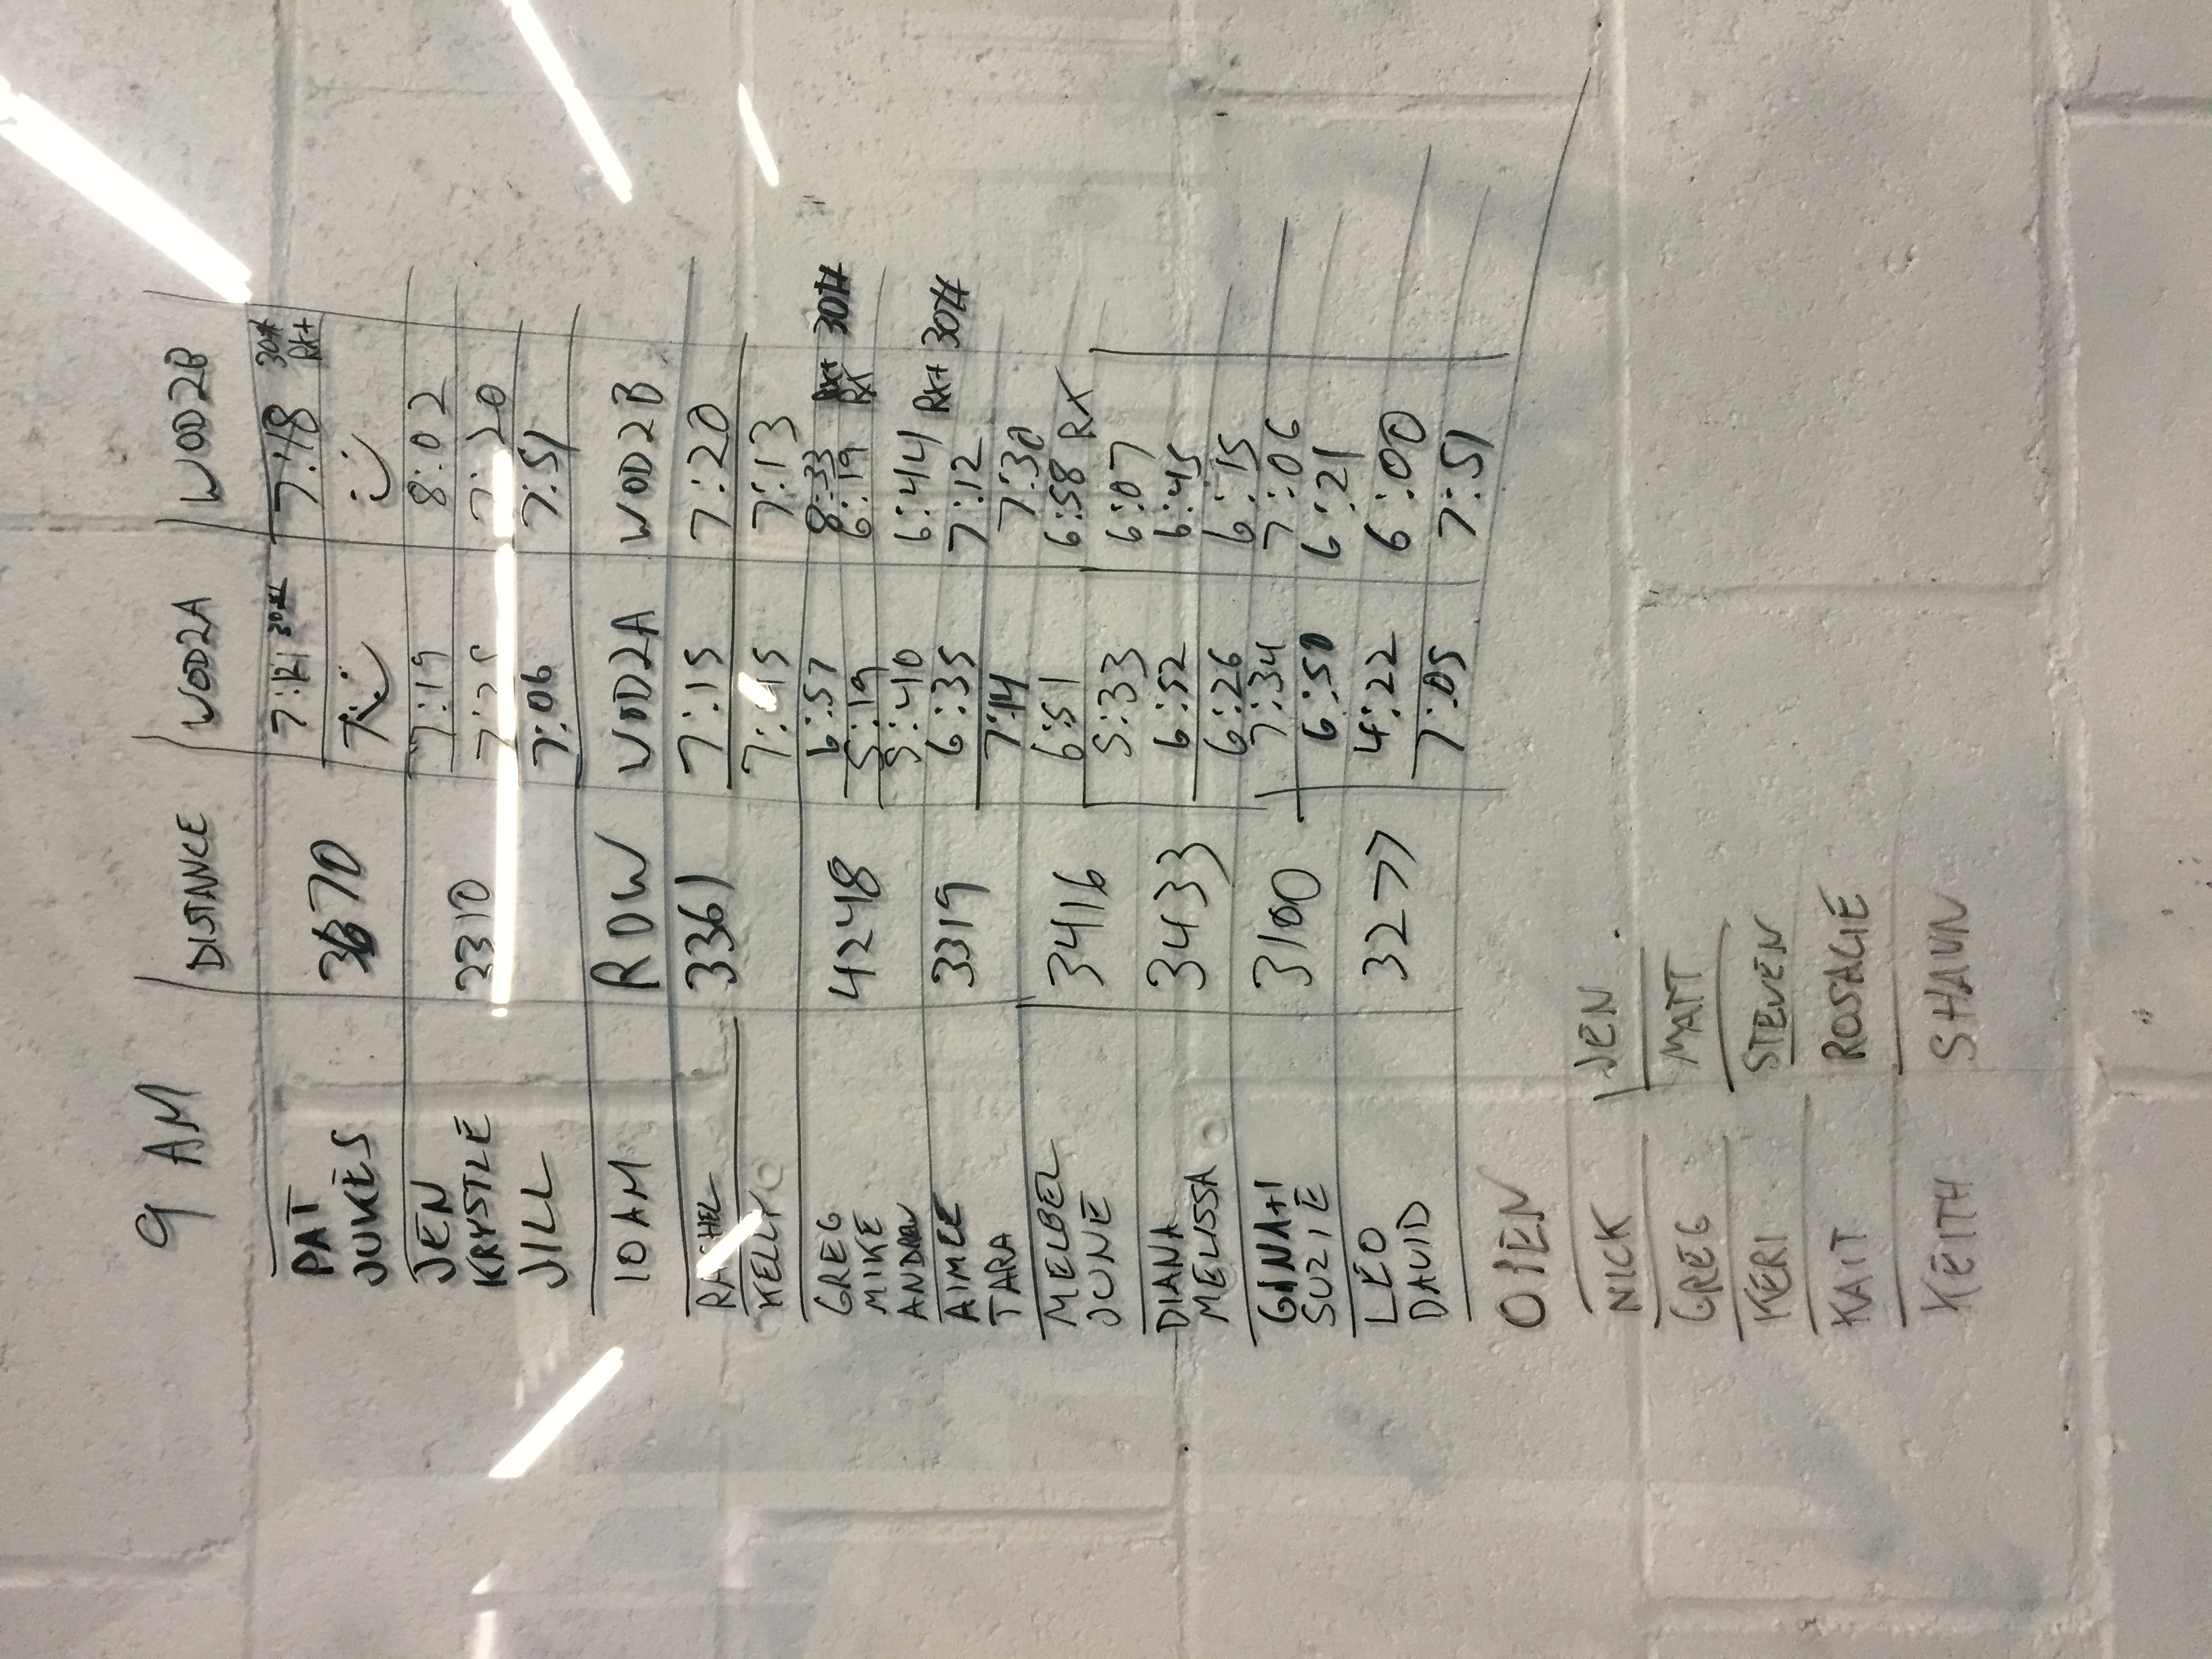 9 AM
DISTANCE WOD2A WOD2B
PAT 7:21 30# 7:18 30# RX+
JUKES 3670
JEN 7:19 8:02
KRYSTLE 3310 7:20
JILL 7:06 7:51
10 AM ROW WOD2A WOD2B
RACHEL 3361 7:15 7:20
KELLY 7:45 7:13
GREG 6:57 8:33
MIKE 4248 5:19 6:19 RX 30#
ANDREW 5:40 6:44 RX+ 30#
AIMEE 3319 6:35 7:12
TARA 7:14 7:30
MELBEL 3416 6:51 6:58 RX
JUNE 5:33 6:07
DIANA 3433 6:52 6:45
MELISSA 6:26 6:15
GINA+1 3100 7:34 7:06
SUZIE 6:50 6:21
LEO 3277 4:22 6:00
DAVID 7:05 7:51
OPEN
NICK JEN
GREG MATT
KERI STEVEN
KAIT ROSALIE
KEITH SHAUN